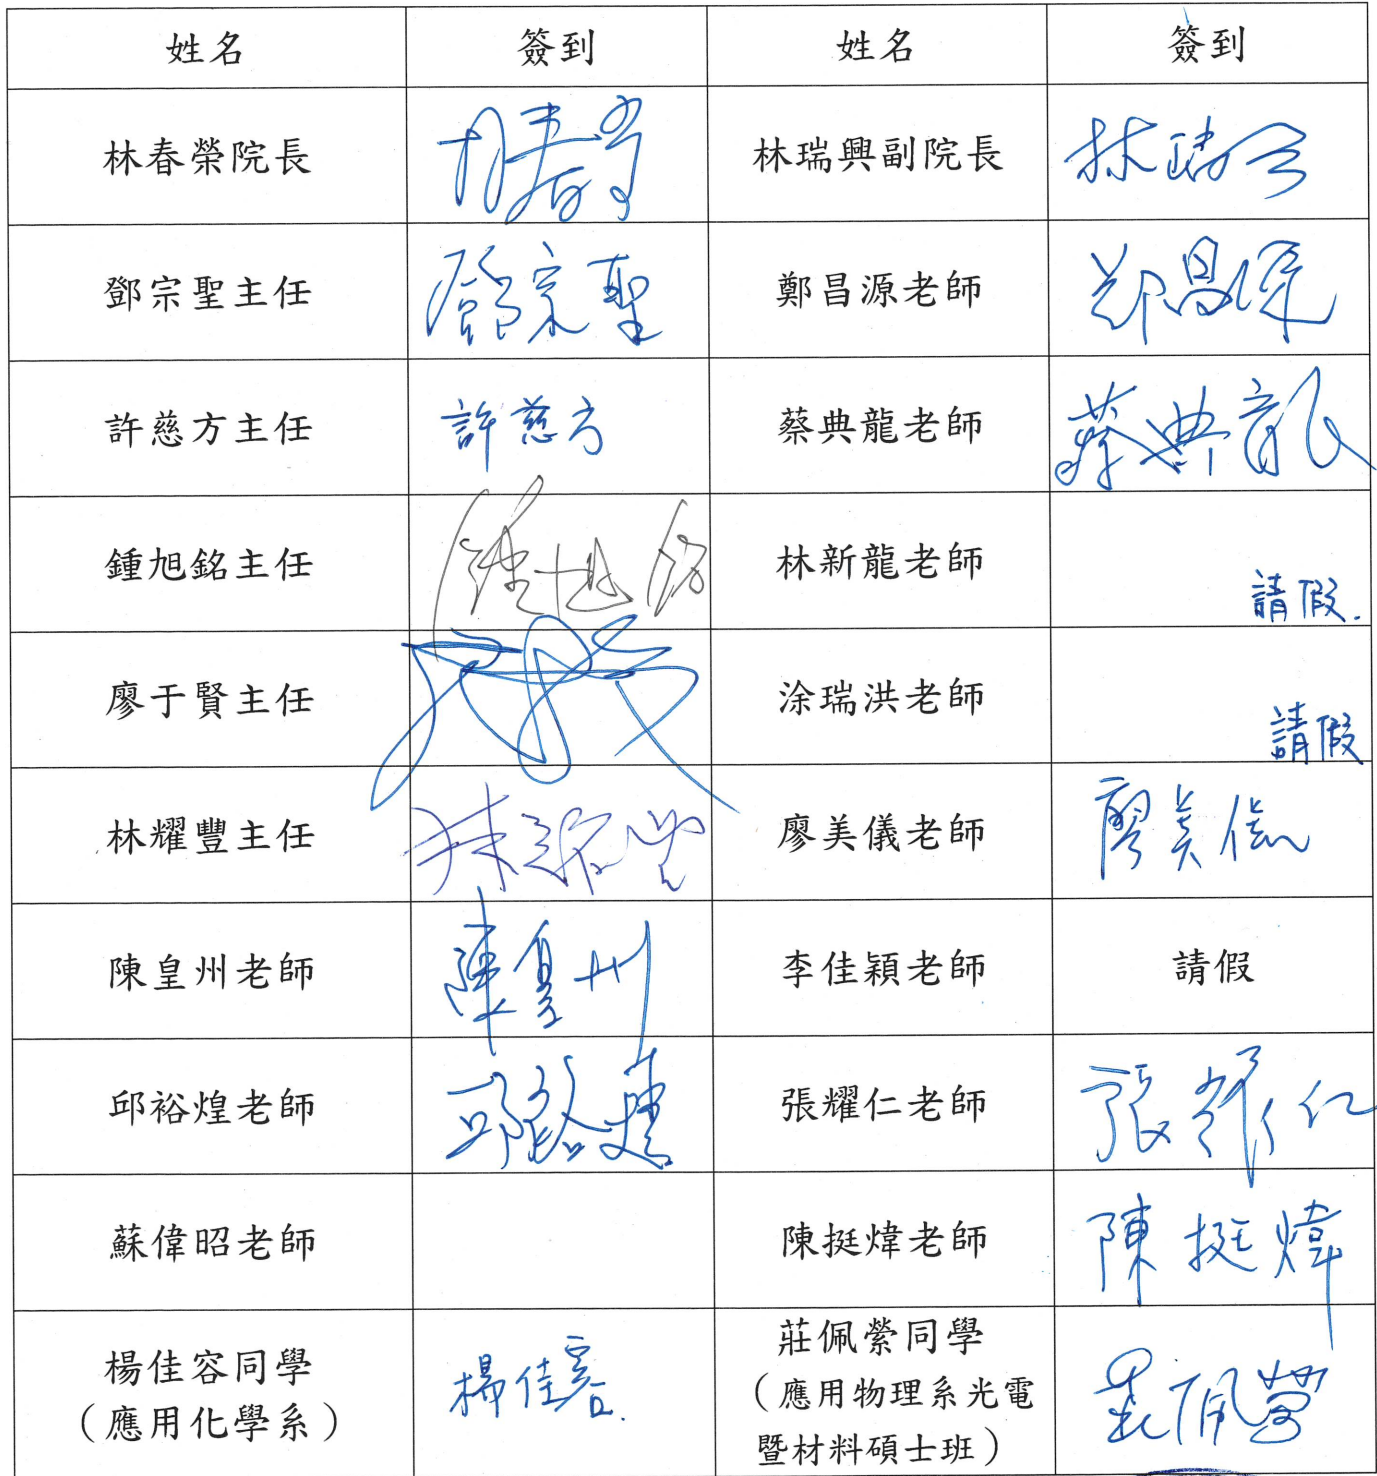 姓名 簽到 姓名 簽到
林春榮院長 林春榮 林瑞興副院長 林瑞興
鄧宗聖主任 鄧宗聖 鄭昌源老師 鄭昌源
許慈方主任 許慈方 蔡典龍老師 蔡典龍
鍾旭銘主任 鍾旭銘 林新龍老師 請假.
廖于賢主任 涂瑞洪老師 請假
林耀豐主任 林耀豐 廖美儀老師 廖美儀
陳皇州老師 陳皇州 李佳穎老師 請假
邱裕煌老師 邱裕煌 張耀仁老師 張耀仁
蘇偉昭老師 陳挺煒老師 陳挺煒
楊佳容同學 楊佳容. 莊佩縈同學 莊佩縈
（應用化學系） （應用物理系光電
暨材料碩士班）